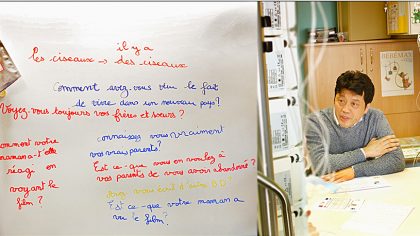 il y a
les ciseaux → des ciseaux
Comment avez-vous vécu le fait
de vivre dans un nouveau pays?
Voyez-vous toujours vos frères et sœurs?
connaissez vous vraiment
vos vrais parents?
Comment votre
maman a-t-elle
réagi en
voyant le
film?
Est-ce-que vous en voulez à
vos parents de vous avoir abandonné?
Avez vous écrit d'autres BD?
Est-ce-que votre maman a
vu le film?
BEREMAS